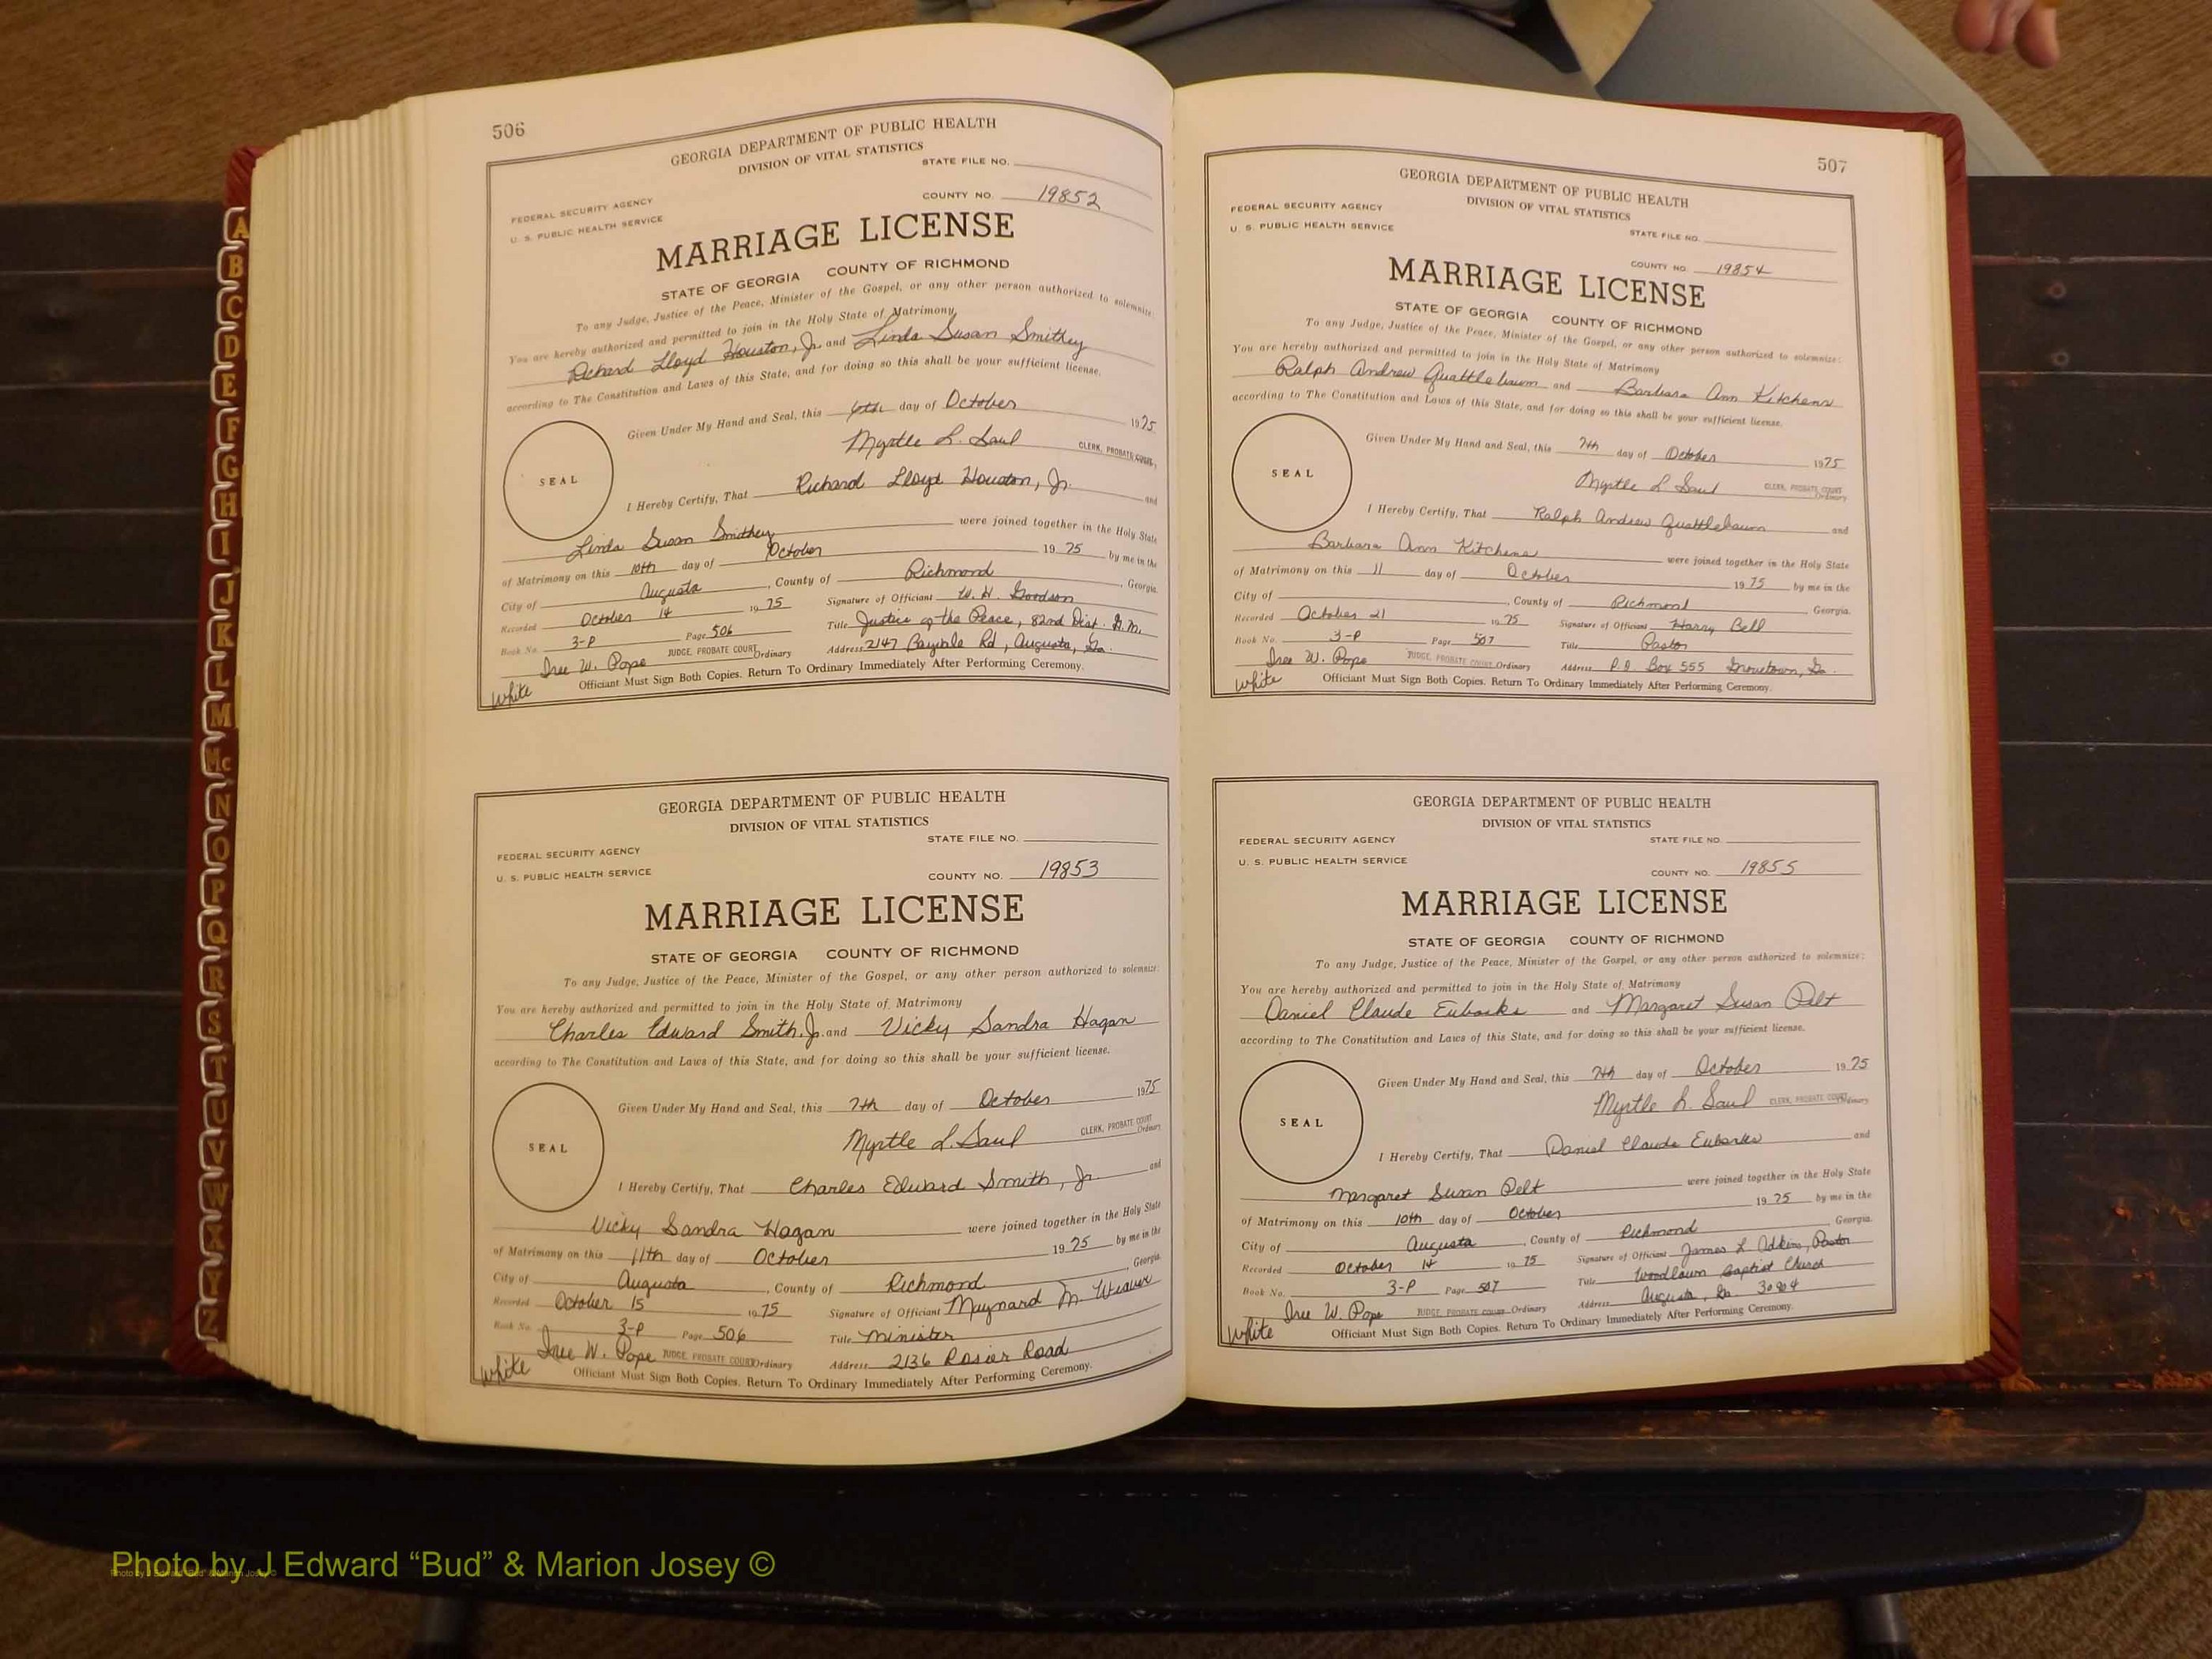 506
GEORGIA DEPARTMENT OF PUBLIC HEALTH
DIVISION OF VITAL STATISTICS
STATE FILE NO.
FEDERAL SECURITY AGENCY
COUNTY NO. 19852
U. S. PUBLIC HEALTH SERVICE
MARRIAGE LICENSE
STATE OF GEORGIA COUNTY OF RICHMOND
To any Judge, Justice of the Peace, Minister of the Gospel, or any other person authorized to solemnize:
You are hereby authorized and permitted to join in the Holy State of Matrimony
Richard Lloyd Houston, Jr. and Linda Susan Smithey
according to The Constitution and Laws of this State, and for doing so this shall be your sufficient license.
Given Under My Hand and Seal, this 6th day of October 1975
Myrtle L. Saul CLERK, PROBATE COURT
SEAL
I Hereby Certify, That Richard Lloyd Houston, Jr. and
Linda Susan Smithey were joined together in the Holy State
of Matrimony on this 10th day of October 1975 by me in the
City of Augusta, County of Richmond, Georgia.
Recorded October 14 1975 Signature of Officiant W. H. Goodson
Book No. 3-P Page 506 Title Justice of the Peace, 82nd Dist. G.M.
Iree W. Pope JUDGE, PROBATE COURT Ordinary Address 2147 Rd, Augusta, Ga.
White Officiant Must Sign Both Copies. Return To Ordinary Immediately After Performing Ceremony.
GEORGIA DEPARTMENT OF PUBLIC HEALTH
DIVISION OF VITAL STATISTICS
STATE FILE NO.
FEDERAL SECURITY AGENCY
U. S. PUBLIC HEALTH SERVICE
COUNTY NO. 19853
MARRIAGE LICENSE
STATE OF GEORGIA COUNTY OF RICHMOND
To any Judge, Justice of the Peace, Minister of the Gospel, or any other person authorized to solemnize:
You are hereby authorized and permitted to join in the Holy State of Matrimony
Charles Edward Smith, Jr. and Vicky Sandra Hagan
according to The Constitution and Laws of this State, and for doing so this shall be your sufficient license.
Given Under My Hand and Seal, this 7th day of October 1975
Myrtle L. Saul CLERK, PROBATE COURT Ordinary
SEAL
I Hereby Certify, That Charles Edward Smith, Jr. and
Vicky Sandra Hagan were joined together in the Holy State
of Matrimony on this 11th day of October 1975 by me in the
City of Augusta, County of Richmond, Georgia.
Recorded October 15 1975 Signature of Officiant Maynard M. Weaver
Book No. 3-P Page 506 Title Minister
Iree W. Pope JUDGE, PROBATE COURT Ordinary Address 2136 Rosier Road
White Officiant Must Sign Both Copies. Return To Ordinary Immediately After Performing Ceremony.
507
GEORGIA DEPARTMENT OF PUBLIC HEALTH
DIVISION OF VITAL STATISTICS
FEDERAL SECURITY AGENCY
U. S. PUBLIC HEALTH SERVICE
STATE FILE NO.
COUNTY NO. 19854
MARRIAGE LICENSE
STATE OF GEORGIA COUNTY OF RICHMOND
To any Judge, Justice of the Peace, Minister of the Gospel, or any other person authorized to solemnize:
You are hereby authorized and permitted to join in the Holy State of Matrimony
Ralph Andrew Quattlebaum and Barbara Ann Kitchens
according to The Constitution and Laws of this State, and for doing so this shall be your sufficient license.
Given Under My Hand and Seal, this 7th day of October 1975
Myrtle L Saul CLERK, PROBATE COURT Ordinary
SEAL
I Hereby Certify, That Ralph Andrew Quattlebaum and
Barbara Ann Kitchens were joined together in the Holy State
of Matrimony on this 11 day of October 1975 by me in the
City of , County of Richmond, Georgia.
Recorded October 21 1975 Signature of Officiant Harry Bell
Book No. 3-P Page 507 Title Pastor
Iree W. Pope JUDGE, PROBATE COURT Ordinary Address P.O Box 555 Grovetown, Ga.
White Officiant Must Sign Both Copies. Return To Ordinary Immediately After Performing Ceremony.
GEORGIA DEPARTMENT OF PUBLIC HEALTH
DIVISION OF VITAL STATISTICS
FEDERAL SECURITY AGENCY STATE FILE NO.
U. S. PUBLIC HEALTH SERVICE
COUNTY NO. 19855
MARRIAGE LICENSE
STATE OF GEORGIA COUNTY OF RICHMOND
To any Judge, Justice of the Peace, Minister of the Gospel, or any other person authorized to solemnize:
You are hereby authorized and permitted to join in the Holy State of Matrimony
Daniel Claude Eubanks and Margaret Susan Pelt
according to The Constitution and Laws of this State, and for doing so this shall be your sufficient license.
Given Under My Hand and Seal, this 7th day of October 1975
Myrtle L. Saul CLERK, PROBATE COURT Ordinary
SEAL
I Hereby Certify, That Daniel Claude Eubanks and
Margaret Susan Pelt were joined together in the Holy State
of Matrimony on this 10th day of October 1975 by me in the
City of Augusta, County of Richmond, Georgia.
Recorded October 14 1975 Signature of Officiant James L Adkins, Pastor
Book No. 3-P Page 507 Title Woodlawn Baptist Church
Iree W. Pope JUDGE, PROBATE COURT Ordinary Address Augusta, Ga. 30904
White Officiant Must Sign Both Copies. Return To Ordinary Immediately After Performing Ceremony.
A
B
C
D
E
F
G
H
I
J
K
L
M
Mc
N
O
P
Q
R
S
T
U
V
W
X
Y
Z
Photo by J Edward “Bud” & Marion Josey ©
Photo by J Edward “Bud” & Marion Josey ©